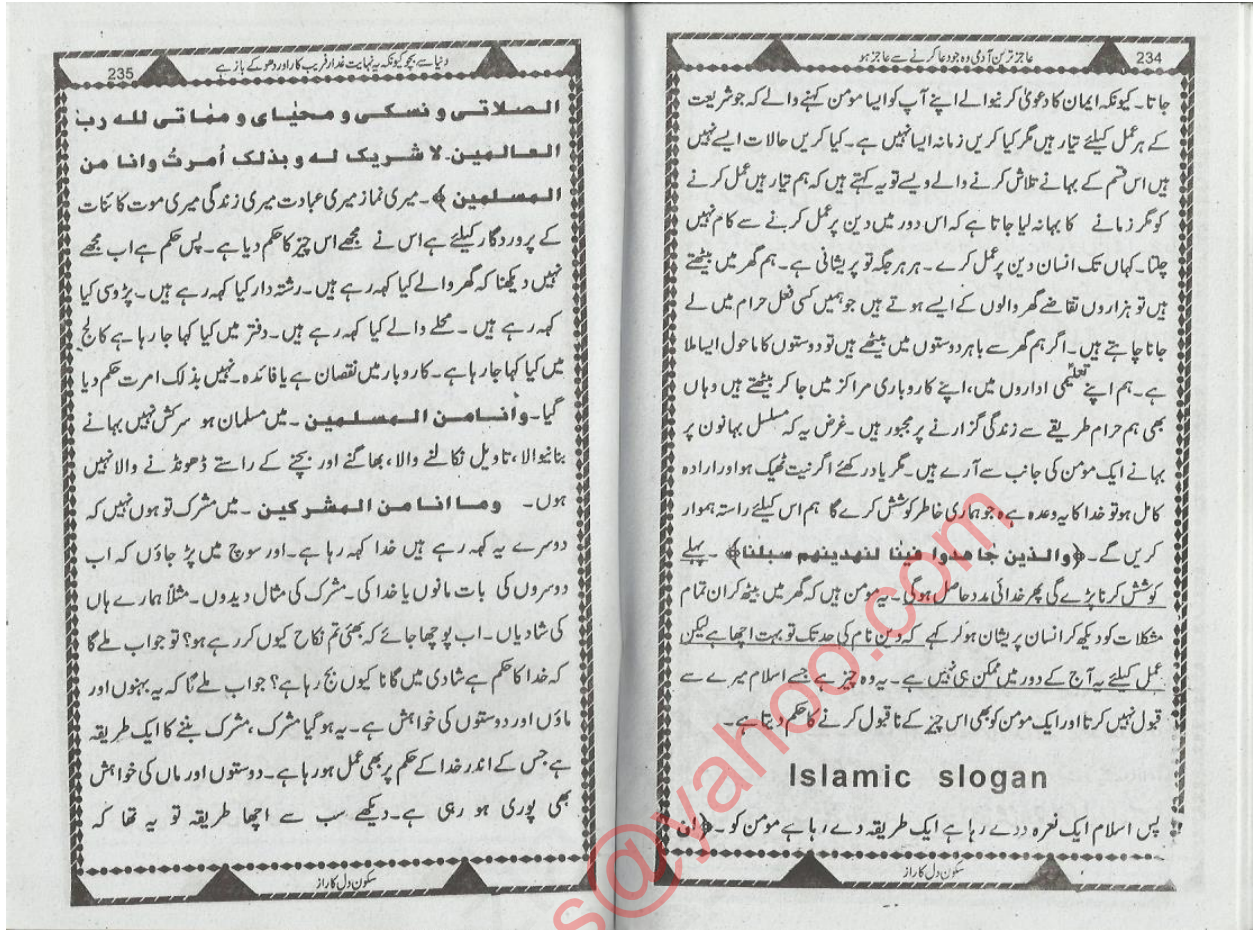 234
عاجز ترین آدمی وہ جو دعا کرنے سے عاجز ہو
جاتا۔ کیونکہ ایمان کا دعویٰ کرنیوالے اپنے آپ کو ایسا مومن کہنے والے کہ جو شریعت
کے ہر عمل کیلئے تیار ہیں مگر کیا کریں زمانہ ایسا نہیں ہے۔ کیا کریں حالات ایسے نہیں
ہیں اس قسم کے بہانے تلاش کرنے والے ویسے تو یہ کہتے ہیں کہ ہم تیار ہیں عمل کرنے
کو مگر زمانے کا بہانہ لیا جاتا ہے کہ اس دور میں دین پر عمل کرنے سے کام نہیں
چلتا۔ کہاں تک انسان دین پر عمل کرے۔ ہر ہر جگہ تو پریشانی ہے۔ ہم گھر میں بیٹھتے
ہیں تو ہزاروں تقاضے گھر والوں کے ایسے ہوتے ہیں جو ہمیں کسی فعل حرام میں لے
جانا چاہتے ہیں۔ اگر ہم گھر سے باہر دوستوں میں بیٹھے ہیں تو دوستوں کا ماحول ایسا ملا
ہے۔ ہم اپنے تعلیمی اداروں میں، اپنے کاروباری مراکز میں جا کر بیٹھتے ہیں وہاں
بھی ہم حرام طریقے سے زندگی گزارنے پر مجبور ہیں۔ غرض یہ کہ مسلسل بہانون پر
بہانے ایک مومن کی جانب سے آرہے ہیں۔ مگر یاد رکھئے اگر نیت ٹھیک ہو اور ارادہ
کامل ہو تو خدا کا یہ وعدہ ہے ہ جو ہماری خاطر کوشش کرے گا ہم اس کیلئے راستہ ہموار
کریں گے۔ ﴿والذین جٰاھدوا فینٰا لنھدینھم سبلنٰا﴾ ۔ پہلے
کوشش کرنا پڑے گی پھر خدائی مدد حاصل ہوگی۔ یہ مومن ہیں کہ گھر میں بیٹھ کر ان تمام
مشکلات کو دیکھ کر انسان پریشان ہو کر کہے کہ دین نام کی حد تک تو بہت اچھا ہے لیکن
عمل کیلئے یہ آج کے دور میں ممکن ہی نہیں ہے۔ یہ وہ چیز ہے جسے اسلام میرے سے
قبول نہیں کرتا اور ایک مومن کو بھی اس چیز کے نا قبول کرنے کا حکم دیتا ہے۔
Islamic slogan
پس اسلام ایک نعرہ ددے رہا ہے ایک طریقہ دے رہا ہے مومن کو۔ ﴿ان
سکون دل کا راز
235
دنیا سے بچو کیونکہ یہ نہایت غدار فریب کار اور دھوکے باز ہے
الصلاتی و نسکی و محیٰای و ممٰاتی للہ رب
العالمین۔ لا شریک لہ و بذلک اُمرتُ وانا من
المسلمین ﴾۔ میری نماز میری عبادت میری زندگی میری موت کائنات
کے پروردگار کیلئے ہے اس نے مجھے اس چیز کا حکم دیا ہے۔ پس حکم ہے اب مجھے
نہیں دیکھنا کہ گھر والے کیا کہہ رہے ہیں۔ رشتہ دار کیا کہہ رہے ہیں۔ پڑوسی کیا
کہہ رہے ہیں ۔ محلے والے کیا کہہ رہے ہیں۔ دفتر میں کیا کہا جا رہا ہے کالج
میں کیا کہا جا رہا ہے۔ کاروبار میں نقصان ہے یا فائدہ۔ نہیں بذلک امرت حکم دیا
گیا۔ وأنا من المسلمین ۔ میں مسلمان ہو سرکش نہیں بہانے
بنانیوالا، تاویل نکالنے والا، بھاگنے اور بچنے کے راستے ڈھونڈنے والا نہیں
ہوں۔ وما انا من المشرکین ۔ میں مشرک تو ہوں نہیں کہ
دوسرے یہ کہہ رہے ہیں خدا کہہ رہا ہے۔ اور سوچ میں پڑ جاؤں کہ اب
دوسروں کی بات مانوں یا خدا کی۔ مشرک کی مثال دیدوں۔ مثلاً ہمارے ہاں
کی شادیاں۔ اب پوچھا جائے کہ بھئی تم نکاح کیوں کر رہے ہو؟ تو جواب ملے گا
کہ خدا کا حکم ہے شادی میں گانا کیوں بج رہا ہے؟ جواب ملے گا کہ یہ بہنوں اور
ماؤں اور دوستوں کی خواہش ہے۔ یہ ہو گیا مشرک، مشرک بننے کا ایک طریقہ
ہے جس کے اندر خدا کے حکم پر بھی عمل ہو رہا ہے۔ دوستوں اور ماں کی خواہش
بھی پوری ہو رہی ہے۔ دیکھے سب سے اچھا طریقہ تو یہ تھا کہ
سکون دل کا راز
s@yahoo.com